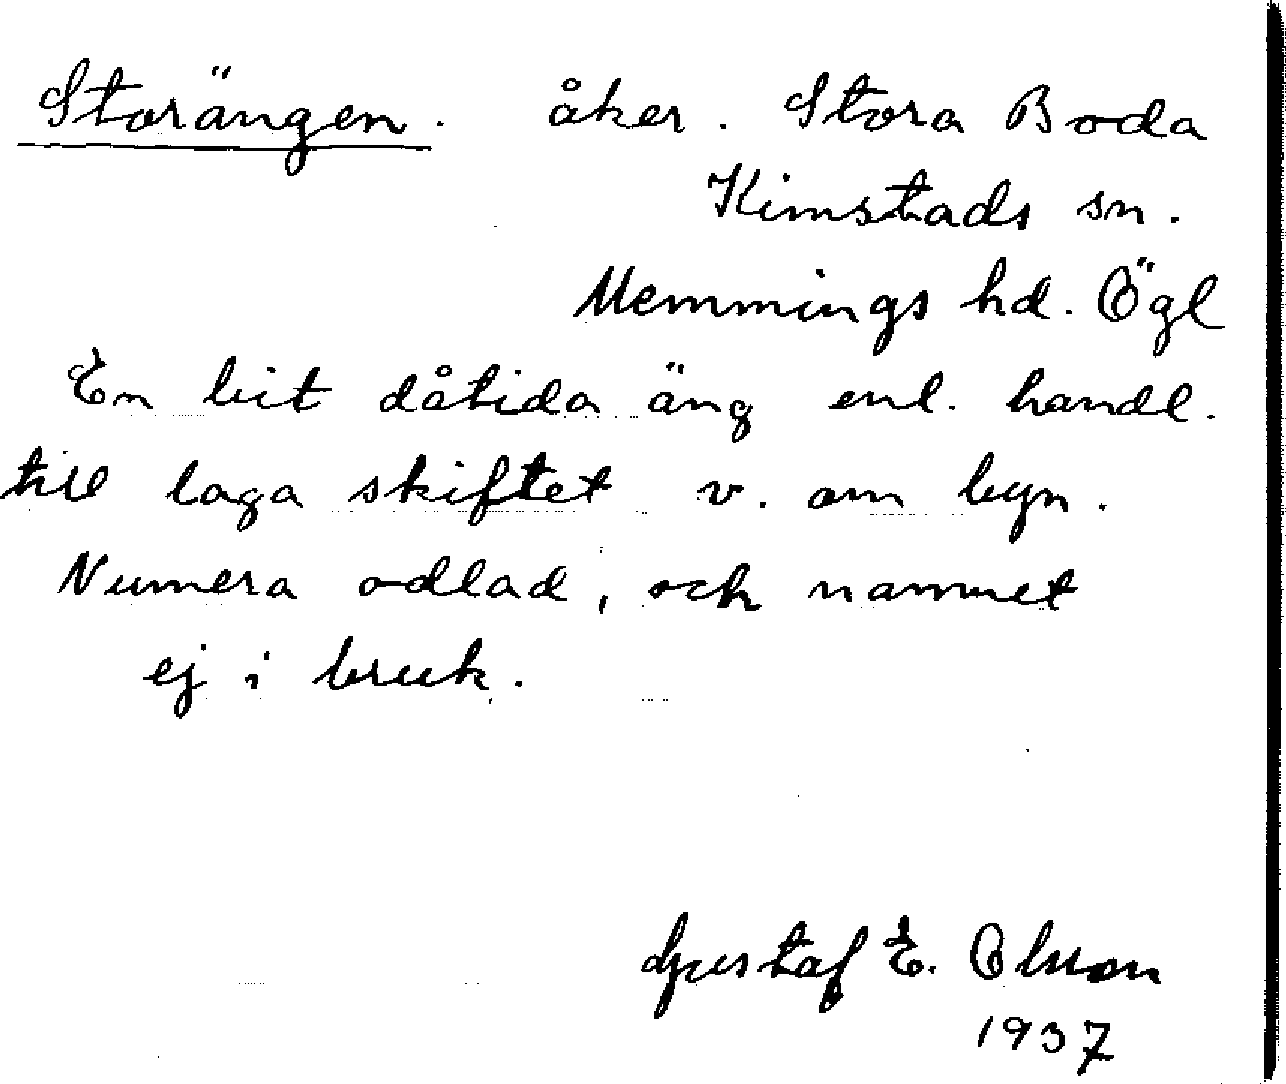 Storängen. åker. Stora Boda
Kimstads sn.
Memmings hd. Ögl
En bit dåtida äng enl. handl.
till laga skiftet v. om byn.
Numera odlad, och namnet
ej i bruk.
Gustaf E. Olson
1937